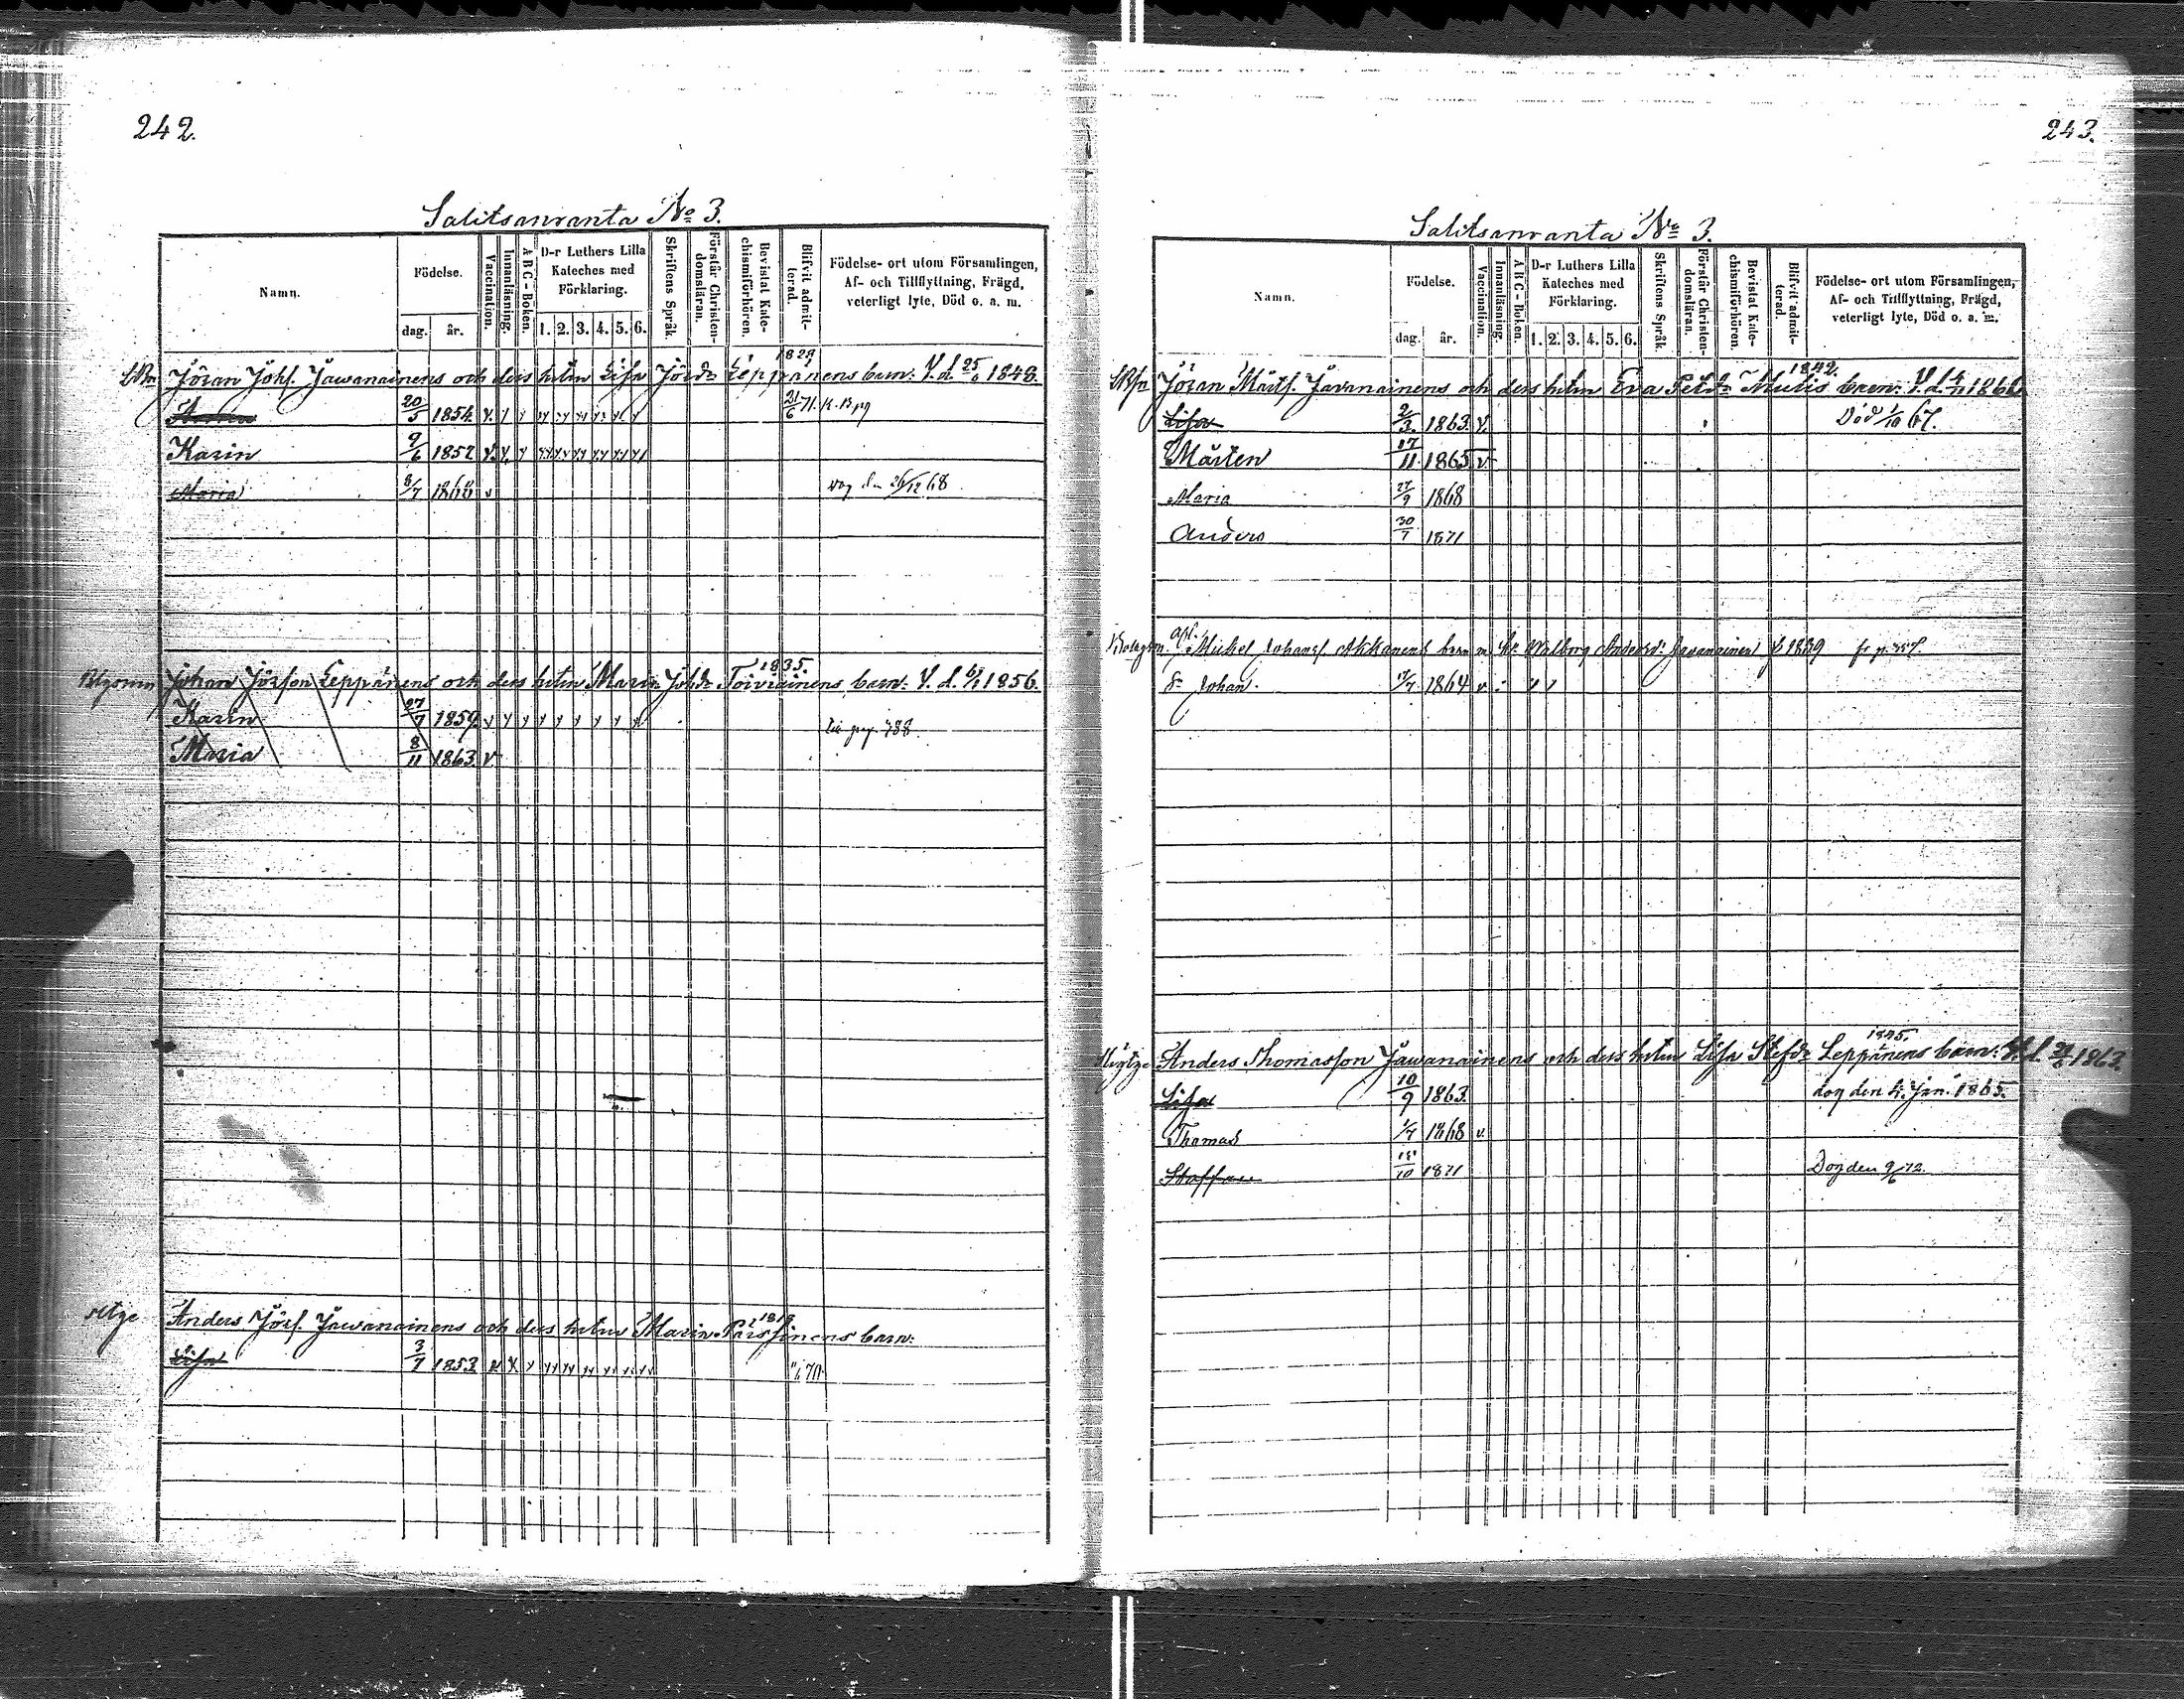 242.
Salitsanranta No 3.
Namn.
Födelse.
dag. år.
Vaccination.
Innanläsning.
A B C - Boken.
D-r Luthers Lilla
Kateches med
Förklaring.
1. 2. 3. 4. 5. 6.
Skriftens Språk.
Förstår Christen-
domsläran.
Bevistat Kate-
chismiförhören.
Blifvit admit-
terad.
Födelse- ort utom Församlingen,
Af- och Tillflyttning, Frägd,
veterligt lyte, Död o. a. m.
1829
Jöran Johs. Jawanainens och dess hstru Lisa Jörsdr Leppänens barn: V. d. 25/6 1848.
20/5 1854. 21/6 71.
Karin 9/6 1857
Maria 6/7 1868 26/12 68
1835.
Johan Jörsson Leppänens och dess hstru Maria Johsdr Toiviainens barn: V. d. 6/1 1856.
Karin 27/7 1859
Maria 8/11 1863. v.
Anders Jörs. Jawanainens och dess hstru Maria Pärssinens barn:
Lisa 3/7 1853 70
243.
Salitsanranta No 3.
Namn.
Födelse.
dag. år.
Vaccination.
Innanläsning.
A B C - Boken.
D-r Luthers Lilla
Kateches med
Förklaring.
1. 2. 3. 4. 5. 6.
Skriftens Språk.
Förstår Christen-
domsläran.
Bevistat Kate-
chismiförhören.
Blifvit admit-
terad.
Födelse- ort utom Församlingen,
Af- och Tillflyttning, Frägd,
veterligt lyte, Död o. a. m.
1842.
Jöran Mårts. Javanainens och dess hstru Eva Petsdr Mutis barn:
Lisa 2/3. 1863. v. Död 1/10 67.
Mårten 17/11 1865 v.
Maria 27/9 1868
Anders 30/7 1871
Mickel Johans. Akkanens barn m. Walborg Andersdr Javanainen 1839
Johan. 1864
1845.
Anders Thomasson Jawanainens och dess hstru Lisa Stefsdr Leppänens barn: 1863.
Lisa 10/9 1863. dog den 4. Jan. 1865.
Thomas 1/7 1868 v.
Staffan 18/10 1871 Dog den 9/6 72.